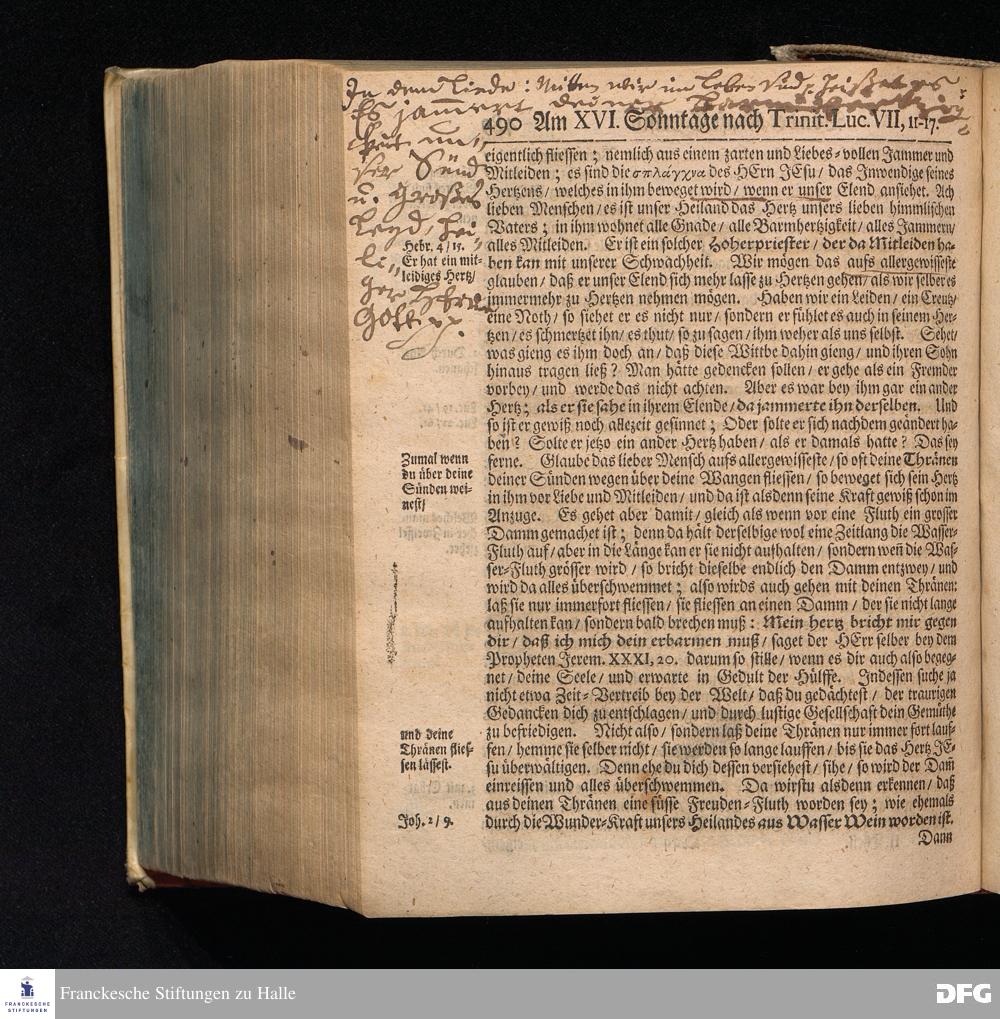 In dem Liede: Mitten wir im Leben sind, heißet es
Es jammert deine Barmhertzig
keit un„
ser Sünd
u. großes
Leyd, hei„
li„
ger Herre
Gott pp.
490 Am XVI. Sonntage nach Trinit. Luc. VII, 11-17.
eigentlich fliessen; nemlich aus einem zarten und Liebes-vollen Jammer und
Mitleiden; es sind die σπλάγχνα des HErn JEsu/ das Inwendige seines
Hertzens/ welches in ihm beweget wird/ wenn er unser Elend ansiehet. Ach
lieben Menschen/ es ist unser Heiland das Hertz unsers lieben himmlischen
Vaters; in ihm wohnet alle Gnade/ alle Barmhertzigkeit/ alles Jammern/
Hebr. 4/ 15.
Er hat ein mit-
leidiges Hertz/
alles Mitleiden. Er ist ein solcher Hoherpriester/ der da Mitleiden ha-
ben kan mit unserer Schwachheit. Wir mögen das aufs allergewisseste
glauben/ daß er unser Elend sich mehr lasse zu Hertzen gehen/ als wir selber es
immermehr zu Hertzen nehmen mögen. Haben wir ein Leiden/ ein Creutz/
eine Noth/ so siehet er es nicht nur/ sondern er fühlet es auch in seinem Her-
tzen/ es schmertzet ihn/ es thut/ so zu sagen/ ihm weher als uns selbst. Sehet/
was gieng es ihm doch an/ daß diese Wittbe dahin gieng/ und ihren Sohn
hinaus tragen ließ? Man hätte gedencken sollen/ er gehe als ein Fremder
vorbey/ und werde das nicht achten. Aber es war bey ihm gar ein ander
Hertz; als er sie sahe in ihrem Elende/ da jammerte ihn derselben. Und
so ist er gewiß noch allezeit gesinnet; Oder solte er sich nachdem geändert ha-
ben? Solte er jetzo ein ander Hertz haben/ als er damals hatte? Das sey
Zumal wenn
du über deine
Sünden wei-
nest/
ferne. Glaube das lieber Mensch aufs allergewisseste/ so oft deine Thränen
deiner Sünden wegen über deine Wangen fliessen/ so beweget sich sein Hertz
in ihm vor Liebe und Mitleiden/ und da ist alsdenn seine Kraft gewiß schon im
Anzuge. Es gehet aber damit/ gleich als wenn vor eine Fluth ein grosser
Damm gemachet ist; denn da hält derselbige wol eine Zeitlang die Wasser-
Fluth auf/ aber in die Länge kan er sie nicht aufhalten/ sondern weñ die Was-
ser-Fluth grösser wird/ so bricht dieselbe endlich den Damm entzwey/ und
wird da alles überschwemmet; also wirds auch gehen mit deinen Thränen:
laß sie nur immerfort fliessen/ sie fliessen an einen Damm/ der sie nicht lange
aufhalten kan/ sondern bald brechen muß: Mein hertz bricht mir gegen
dir/ daß ich mich dein erbarmen muß/ saget der HErr selber bey dem
Propheten Jerem. XXXI, 20. darum so stille/ wenn es dir auch also begeg-
net/ deine Seele/ und erwarte in Gedult der Hülffe. Indessen suche ja
nicht etwa Zeit-Vertreib bey der Welt/ daß du gedächtest/ der traurigen
Gedancken dich zu entschlagen/ und durch lustige Gesellschaft dein Gemüthe
und deine
Thränen flies-
sen lässest.
zu befriedigen. Nicht also/ sondern laß deine Thränen nur immer fort lauf-
fen/ hemme sie selber nicht/ sie werden so lange lauffen/ bis sie das Hertz JE-
su überwältigen. Denn ehe du dich dessen versiehest/ sihe/ so wird der Dam̃
einreissen und alles überschwemmen. Da wirstu alsdenn erkennen/ daß
aus deinen Thränen eine süsse Freuden-Fluth worden sey; wie ehemals
Joh. 2/ 9.
durch die Wunder-Kraft unsers Heilandes aus Wasser Wein worden ist.
Dann
FRANCKESCHE
STIFTUNGEN
Franckesche Stiftungen zu Halle
DFG